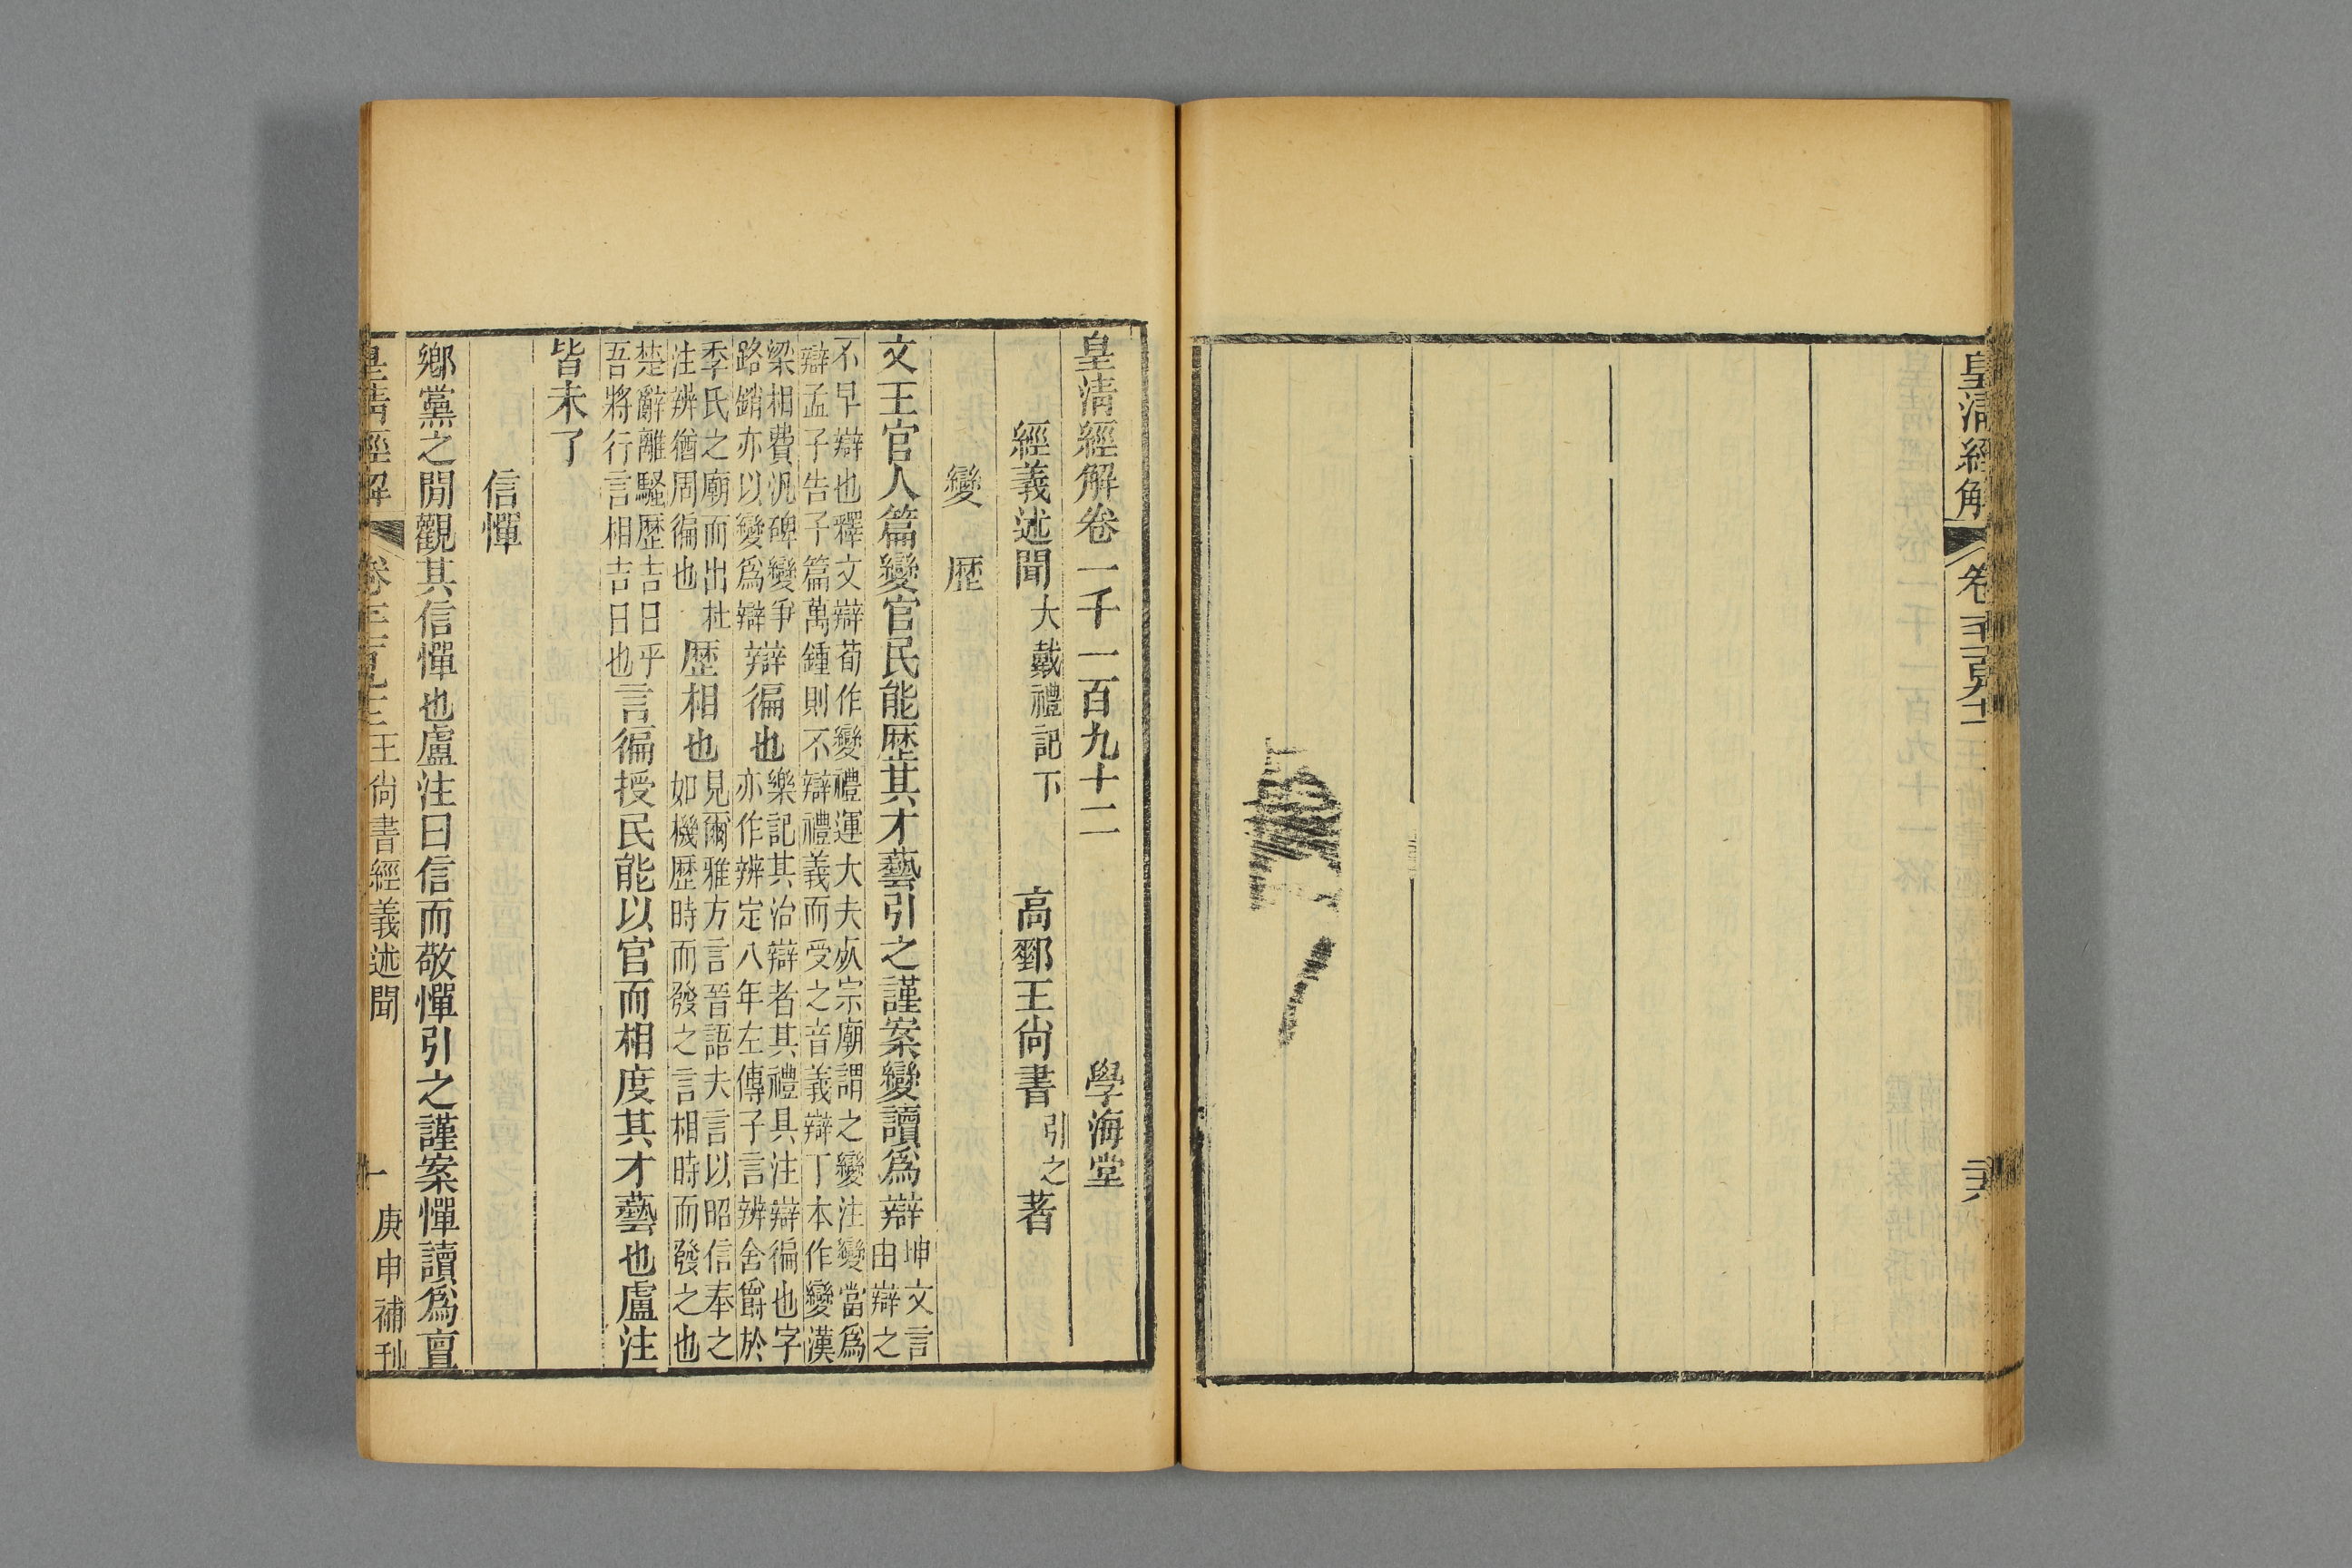 皇清經解
卷千一百九十一
皇清經解卷一千一百九十二
學海堂
經義述聞大戴禮記下
高郵王尙書引之著
變歷
文王官人篇變官民能歷其才藝引之謹案變讀爲辯坤文言
由辯之
不早辯也釋文辯荀作變禮運大夫死宗廟謂之變注變當爲
辯孟子告子篇萬鍾則不辯禮義而受之音義辯丁本作變漢
梁相費汎碑變爭
路銷亦以變爲辯
辯徧也
樂記其治辯者其禮具注辯徧也字
亦作辨定八年左傳子言辨舍爵於
季氏之廟而出杜
注辨猶周徧也
歷相也
見爾雅方言晉語夫言以昭信奉之
如機歷時而發之言相時而發之也
楚辭離騷歷吉日乎
吾將行言相吉日也
言徧授民能以官而相度其才藝也盧注
皆未了
信憚
鄉黨之閒觀其信憚也盧注曰信而敬憚引之謹案憚讀爲亶
皇清經解
王尙書經義述聞
一
庚申補刊